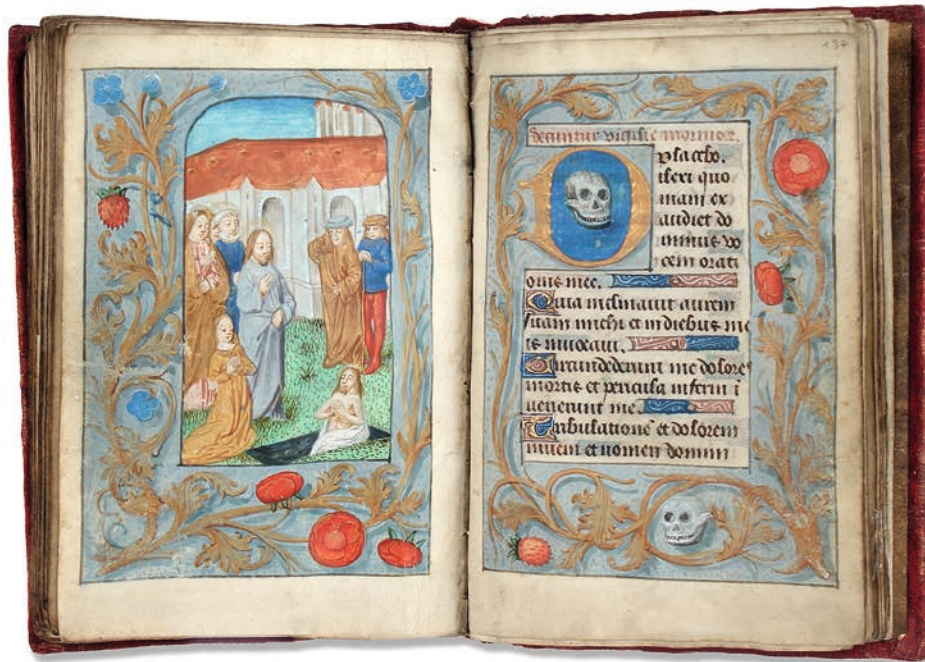 137
Secuntur vigilie mortuor.
placebo.
Dilexi quo
niam ex
audiet do
minus vo
cem orati
onis mee.
Quia inclinauit aurem
suam michi et in diebus me
is inuocaui.
Circundederunt me dolores
mortis et pericula inferni i
uenerunt me.
Tribulatione et dolorem
inueni et nomen domini